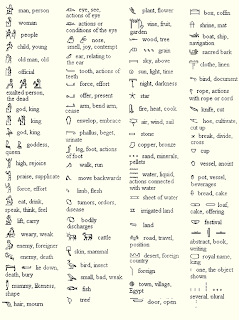 man, person
woman
people
child, young
old man, old
official
exalted person,
the dead
god, king
king
god, king
goddess,
high, rejoice
praise, supplicate
force, effort
eat, drink,
speak, think, feel
lift, carry
weary, weak
enemy, foreigner
enemy, death
lie down,
death, bury
mummy, likeness,
shape
hair, mourn
eye, see,
actions of eye
actions or
conditions of the eye
nose,
smell, joy, contempt
ear, relating to
the ear
tooth, actions of
teeth
force, effort
offer, present
arm, bend arm,
cease
envelop, embrace
phallus, beget,
urinate
leg, foot, actions
of foot
walk, run
move backwards
limb, flesh
tumors, odors,
disease
bodily
discharges
cattle
skin, mammal
bird, insect
small, bad, weak
fish
tree
plant, flower
vine, fruit,
garden
wood, tree
grain
sky, above
sun, light, time
night, darkness
star
fire, heat, cook
air, wind, sail
stone
copper, bronze
sand, minerals,
pellets
water, liquid,
actions connected
with water
sheet of water
irrigated land
land
road, travel,
position
desert, foreign
country
foreign
town, village,
Egypt
door, open
box, coffin
shrine, mat
boat, ship,
navigation
sacred bark
clothe, linen
bind, document
rope, actions
with rope or cord
hoe, cultivate,
cut up
break, divide,
cross
cup
vessel, anoint
pot, vessel,
beverages
bread, cake
loaf,
cake, offering
festival
abstract, book,
writing
royal name,
king
one, the object
shown
several, plural